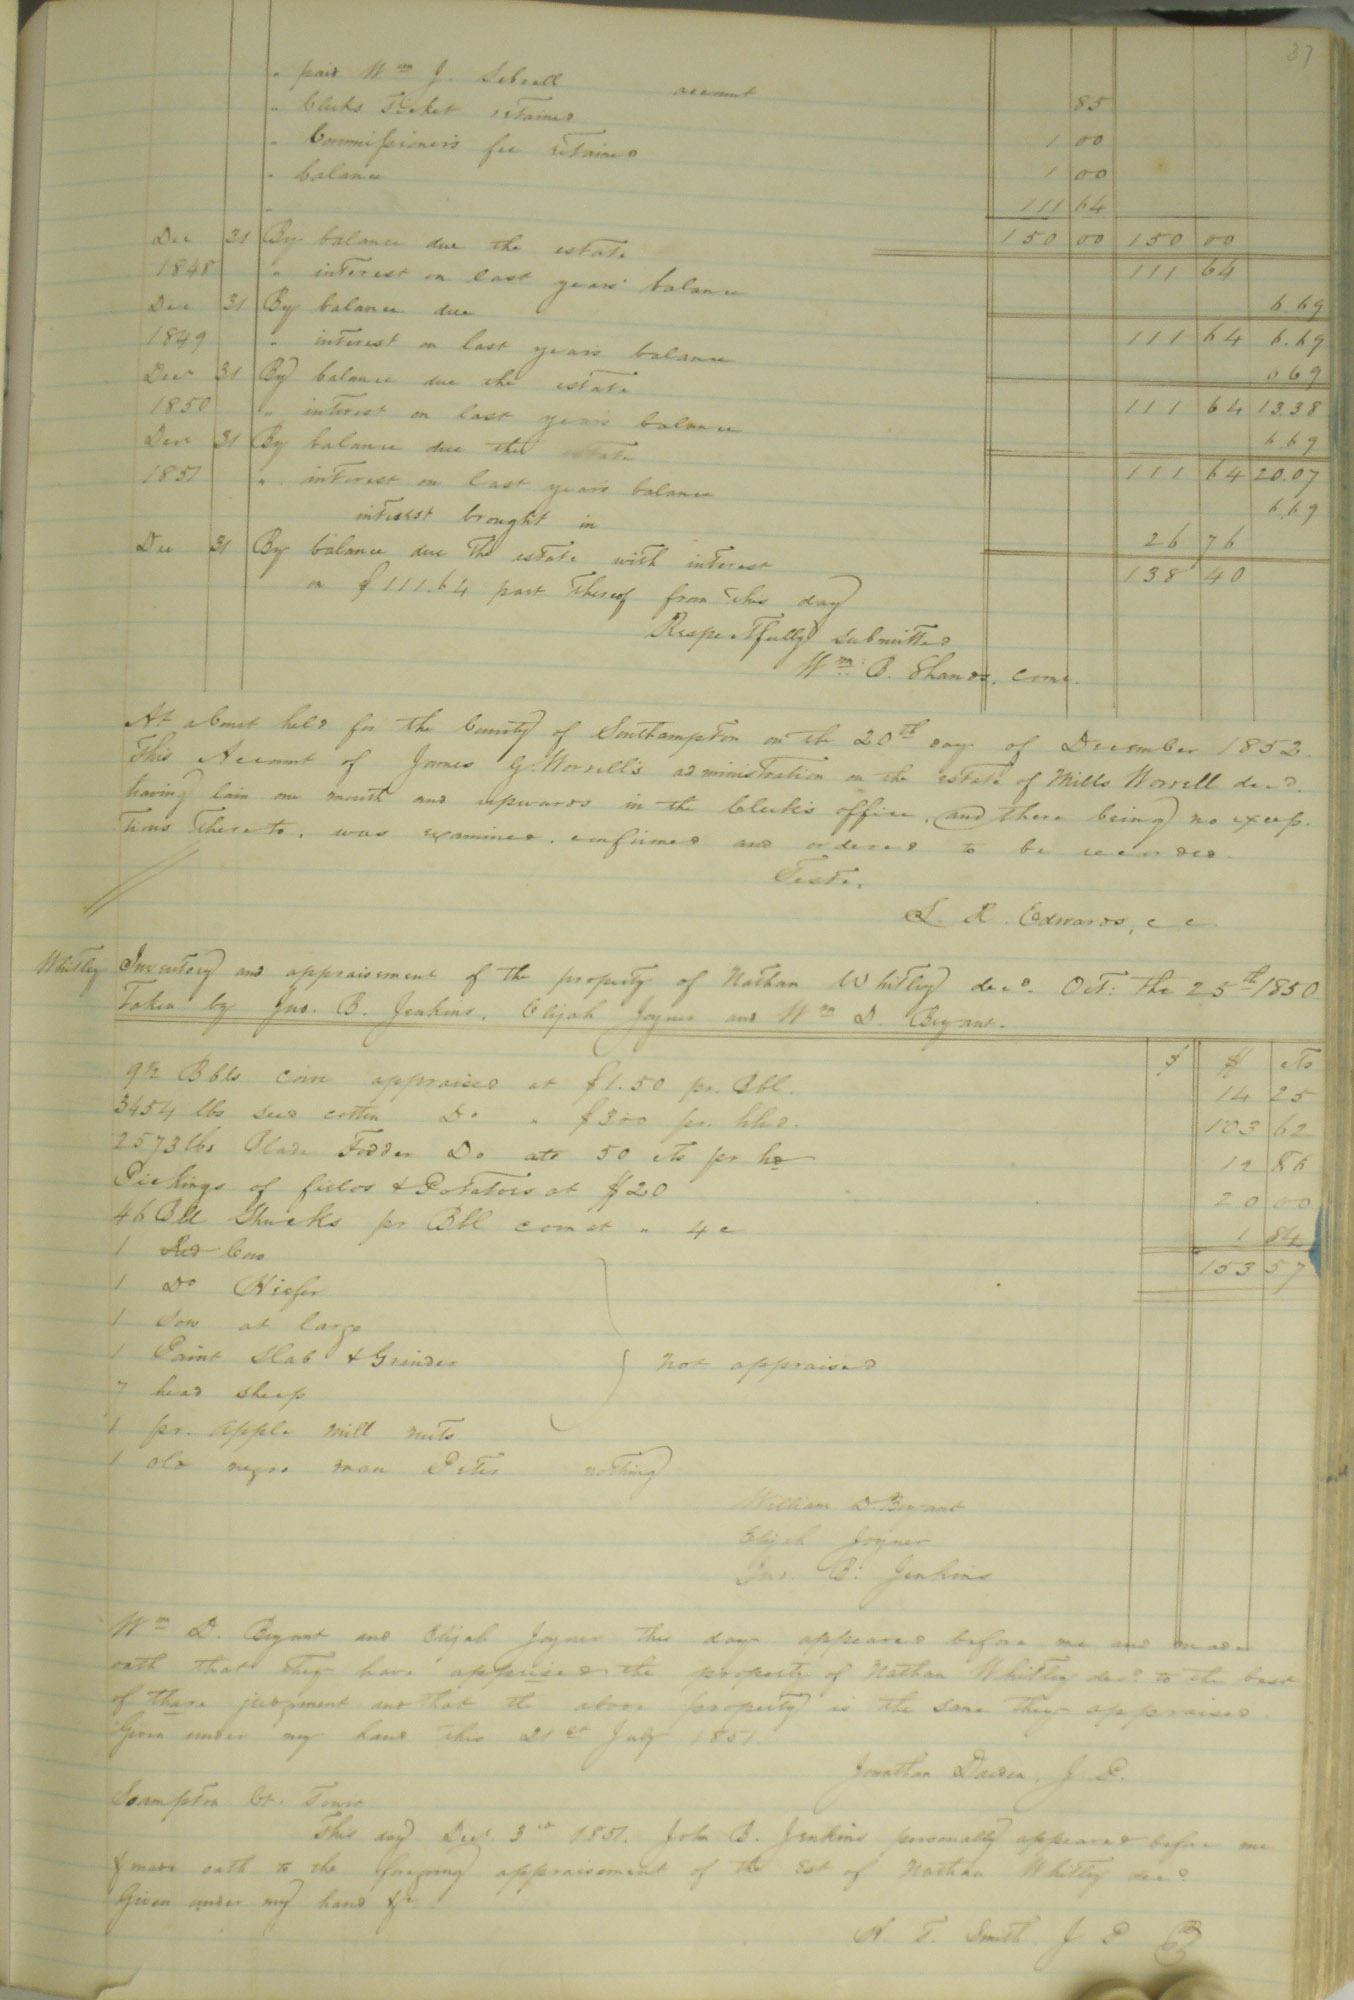 37
" paid Wm J. Sebrell account 85
" Clerks Ticket retained 1 00
" Commissioners fee retained 1 00
" balance 111 64
150 00 150 00
Dec 31 By balance due the estate 111 64
1848 " interest on last years balance 6.69
Dec 31 By balance due 111 64 6.69
1849 " interest on last years balance 6 69
Decr 31 By balance due the estate 111 64 13.38
1850 " interest on last years balance 6.69
Decr 31 By balance due the estate 111 64 20.07
1851 " interest on last years balance 6.69
interest brought in 26 76
Dec 31 By balance due the estate with interest 138 40
on $111.64 part thereof from this day
Respectfully submitted
Wm. B. Shands, Com.
At a Court held for the County of Southampton on the 20th day of December 1852.
This Account of James G. Worrell's administration on the estate of Mills Worrell decd.
having lain one month and upwards in the Clerk's office, and there being no excep-
tions thereto, was examined, confirmed and ordered to be recorded.
Teste,
L. R. Edwards, c c
Whitley Inventory and appraisement of the property of Nathan Whitley decd. Oct: the 25th 1850
Taken by Jno. B. Jenkins, Elijah Joyner and Wm D. Bryant.
$ $ cts
9½ Bbls corn appraised at $1.50 pr. Bbl. 14 25
3454 lbs seed cotton Do " $3.00 pr. hhd. 103 62
2573 lbs Blade Fodder Do att 50 cts pr hd 12 86
Pickings of fields & Potatoes at $20 20 00
46 Bbl Shucks pr Bbl corn at " 4c 1 84
153 57
1 Red Cow
1 Do Hiefer
1 Sow at large
1 Paint Slab & Grinder not appraised
7 head sheep
1 pr. apple mill nuts
1 old negro man Peter nothing
William D. Bryant
Elijah Joyner
Jno. B. Jenkins
Wm D. Bryant and Elijah Joyner this day appeared before me and made
oath that they have apprised the property of Nathan Whitley decd. to the best
of thare judgment and that the above property is the same they appraised.
Given under my hand this 21st July 1851.
Jonathan Darden, J P.
Soampton Ct. Towit
This day Decr. 3rd 1851. John B. Jenkins personally appeared before me
& made oath to the foregoing appraisement of the Est of Nathan Whitley decd
Given under my hand &c.
A. T. Smith J P